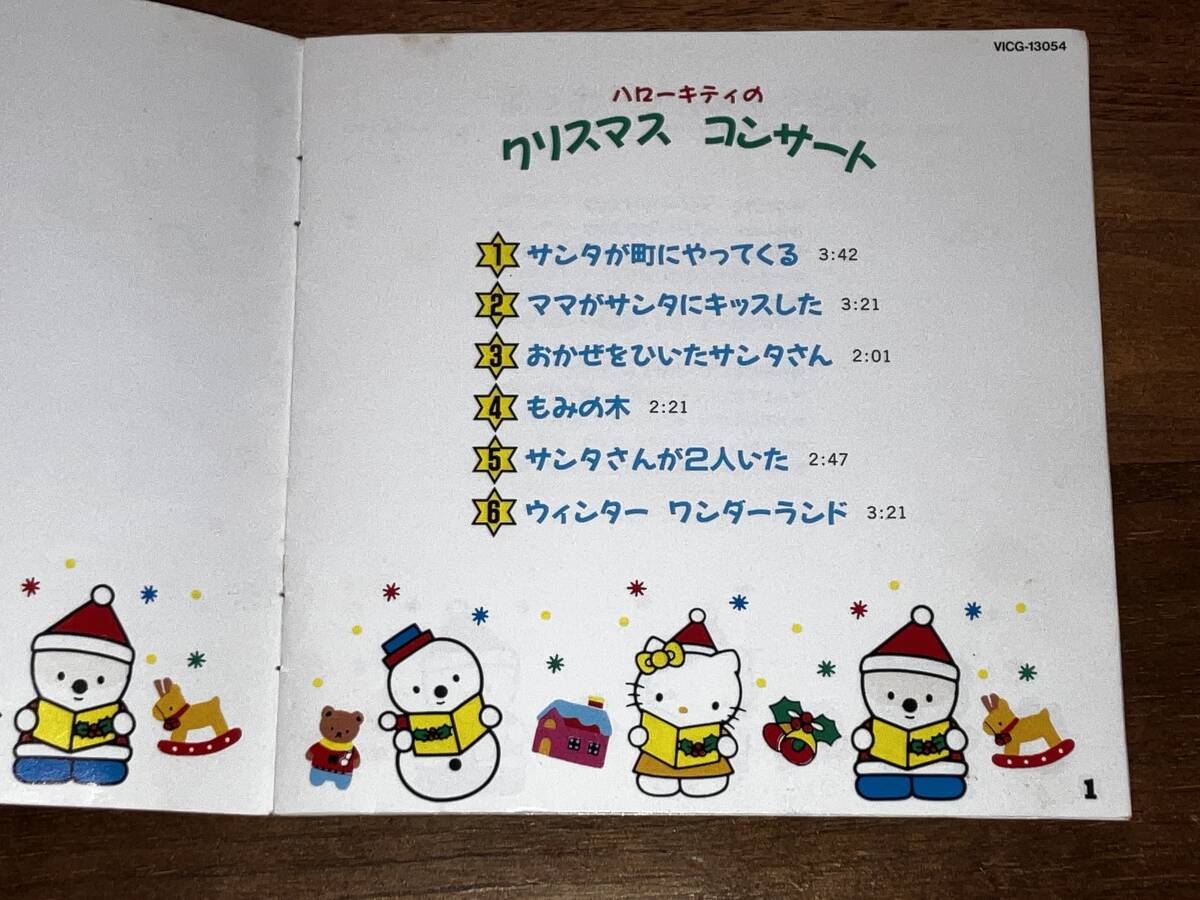 VICG-13054
ハローキティの
クリスマス コンサート
1 サンタが町にやってくる 3:42
2 ママがサンタにキッスした 3:21
3 おかぜをひいたサンタさん 2:01
4 もみの木 2:21
5 サンタさんが2人いた 2:47
6 ウィンター ワンダーランド 3:21
1